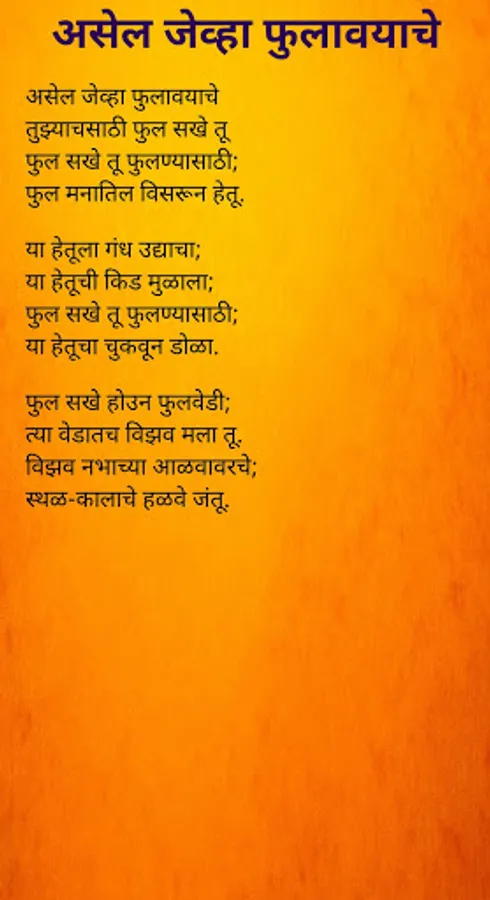 असेल जेव्हा फुलावयाचे
असेल जेव्हा फुलावयाचे
तुझ्याचसाठी फुल सखे तू
फुल सखे तू फुलण्यासाठी;
फुल मनातिल विसरून हेतू.
या हेतूला गंध उद्याचा;
या हेतूची किड मुळाला;
फुल सखे तू फुलण्यासाठी;
या हेतूचा चुकवून डोळा.
फुल सखे होउन फुलवेडी;
त्या वेडातच विझव मला तू.
विझव नभाच्या आळवावरचे;
स्थळ-कालाचे हळवे जंतू.